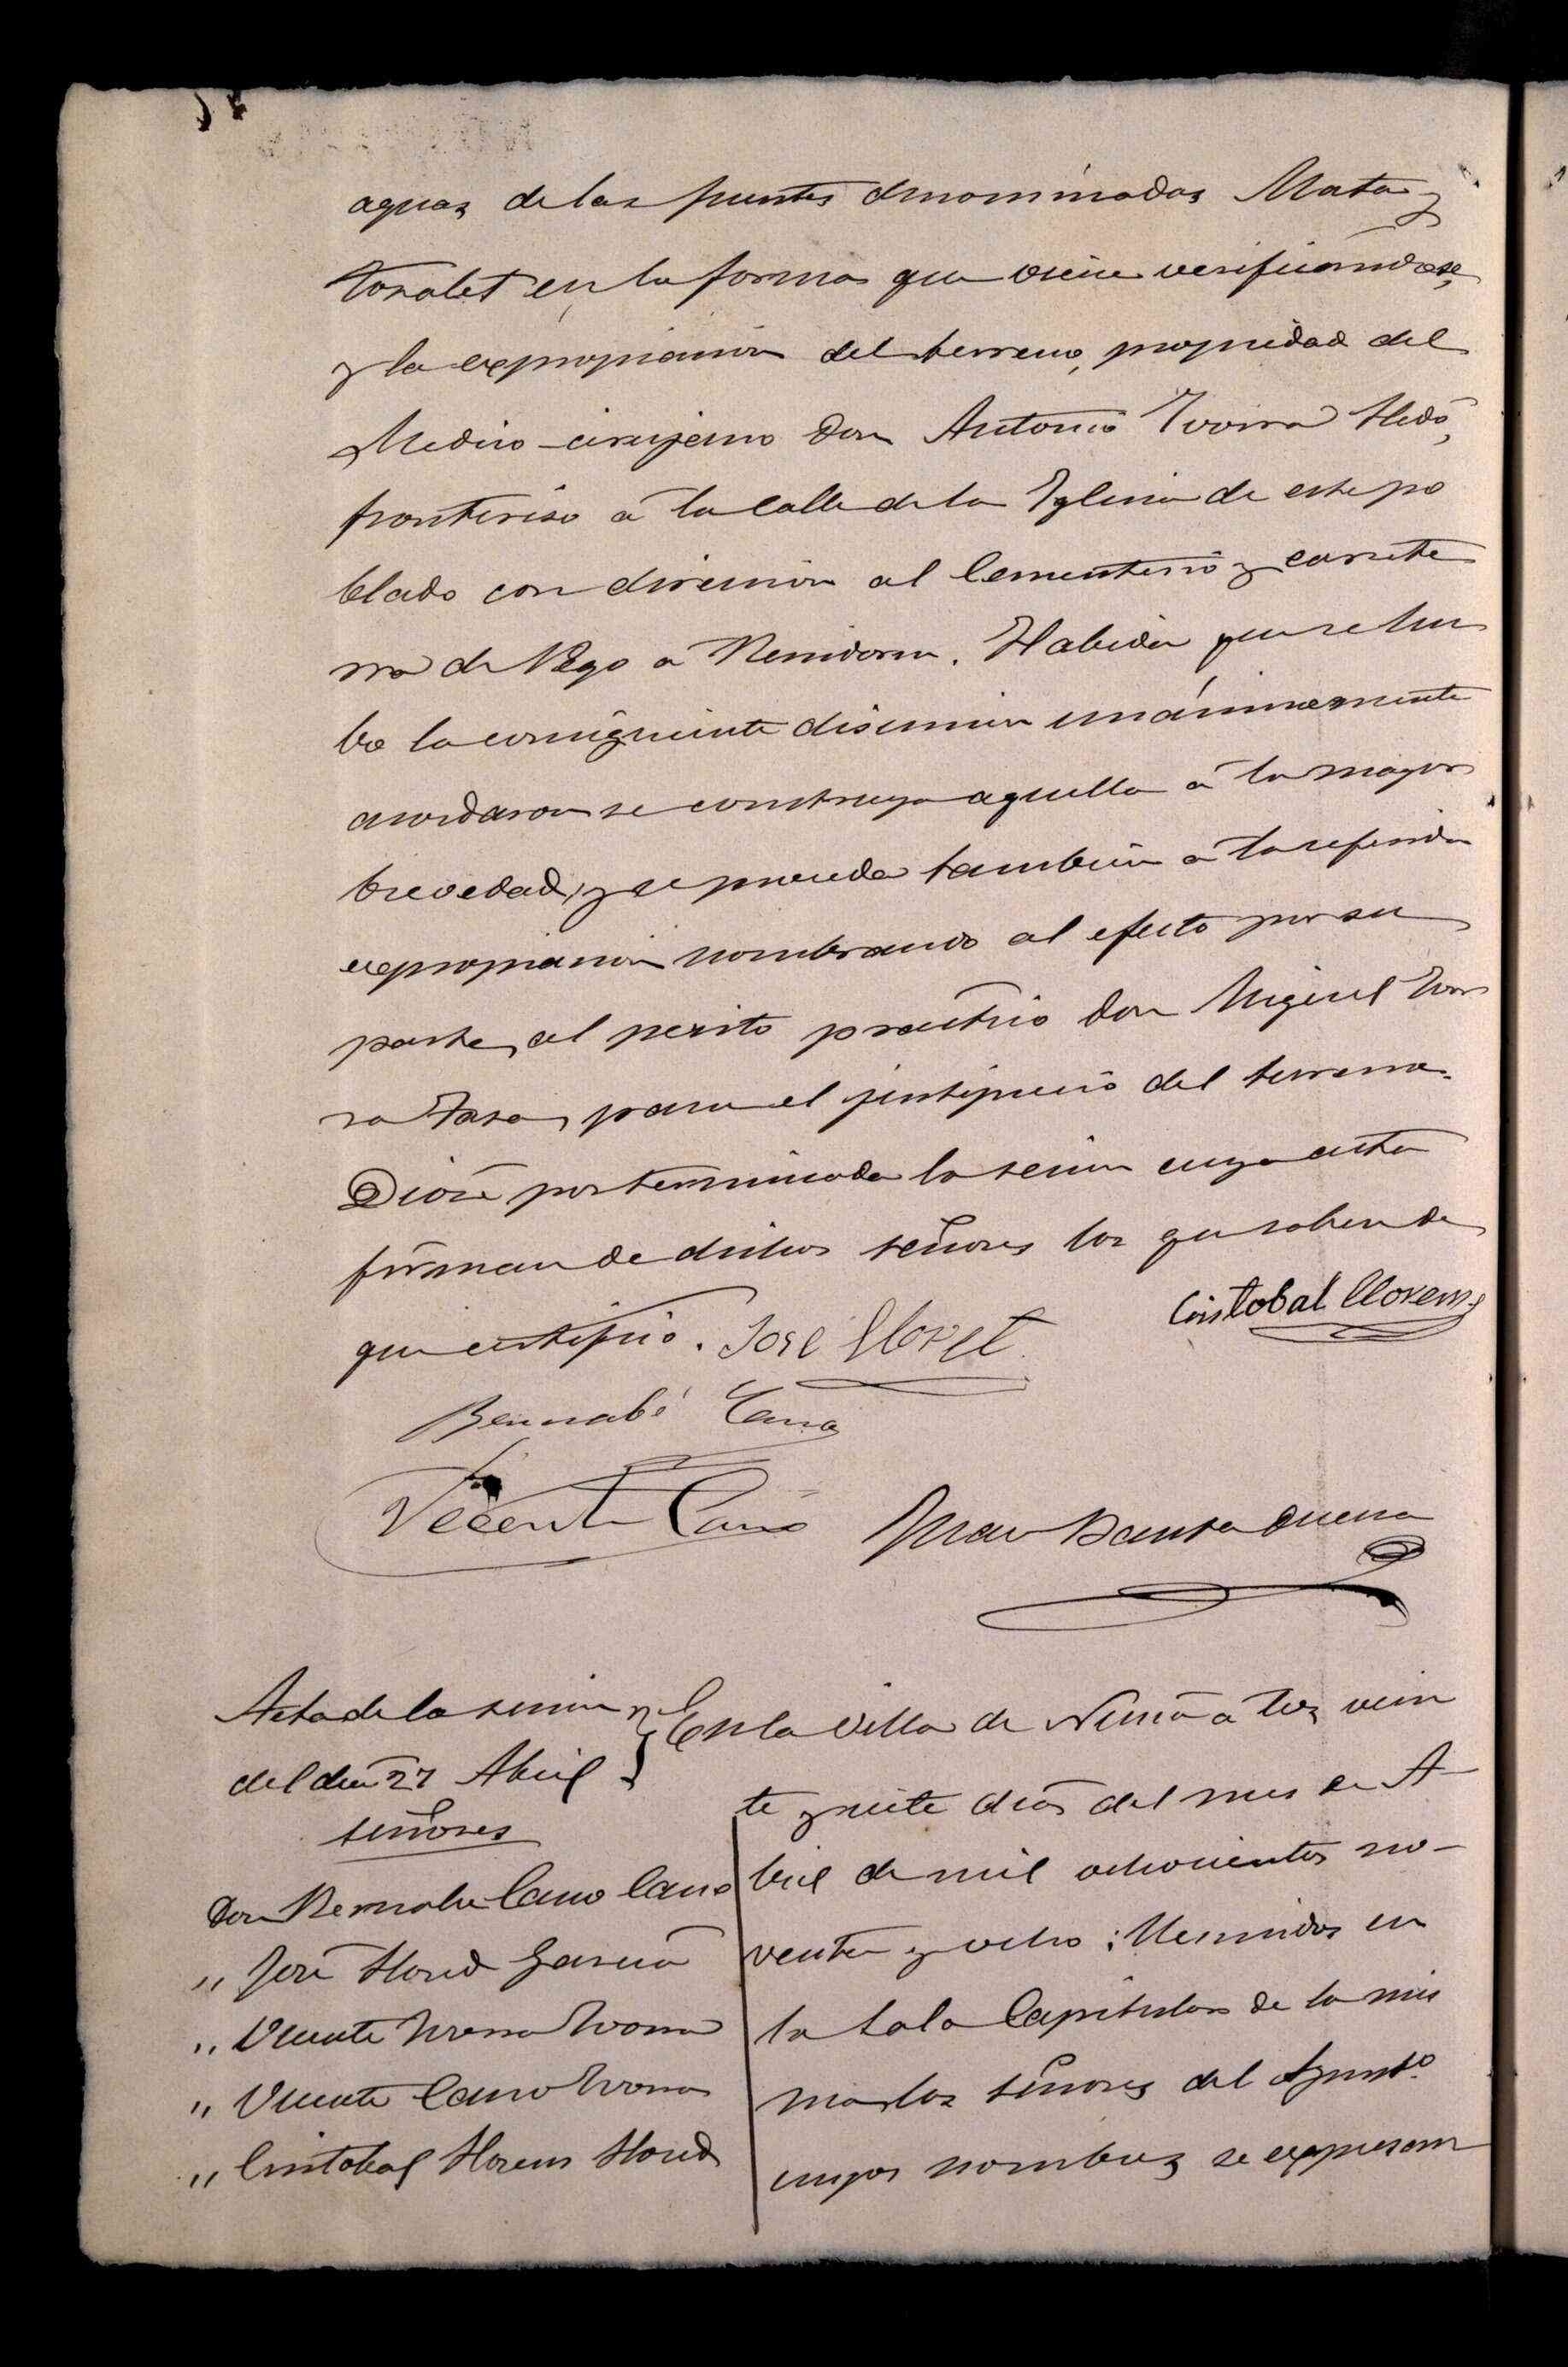 aguas de las fuentes denominadas Mata y
Toralet en la forma que viene verificandose,
y la expropiación del terreno, propiedad del
Medico-cirujano Don Antonio Yvorra
fronteriso á la Calle de la Yglesia de este po
blado con dirección al Cementerio y carrete
ra de Pego á Benidorm. Habida que se hu
bo la consiguiente discusion unánimemente
acordaron se construya aquella á la mayor
brevedad, y se proceda tambien á la referida
expropiacion nombrando al efecto por su
parte, al perito practico Don Miguel Yvor
ra para el justiprecio del terreno.
Diose por terminada la sesion cuya acta
firman de dichos señores los que saben de
que certifico. José Lloret
Cristobal Llorens
Bernabé Cano
Vicente Cano
Juan Bauta
Acta de la sesion
del dia 27 Abril
señores
Don Bernabe Cano Cano
" José Lloret Garcia
" Vicente Yvorra Yvorra
" Vicente Cano Yvorra
" Cristobal Llorens Lloret
En la Villa de Nucia a los vein
te y siete dias del mes de A-
bril de mil ochocientos no-
venta y ocho; Reunidos en
la Sala Capitular de la mis
ma los señores del Aynto.
cuyos nombres se expresan